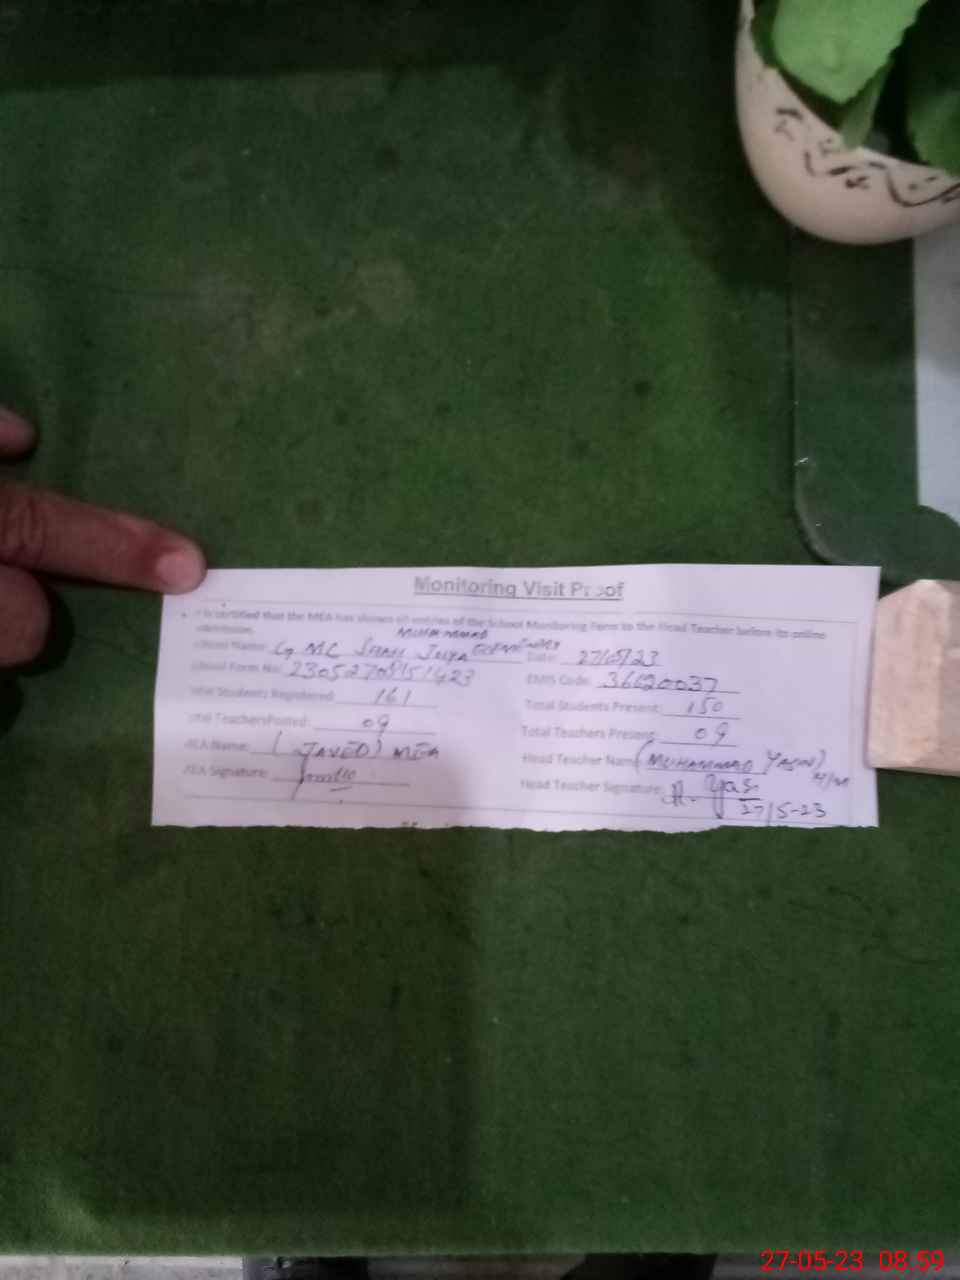 Monitoring Visit Proof
It is certified that the MEA has shown all entries of the School Monitoring Form to the Head Teacher before its online
submission.
MUHAMMAD
School Name: G MC SHAH
Date: 27/05/23
School Form No:
EMIS Code: 36620037
Total Students Registered: 161
Total Students Present: 150
Total TeachersPosted: 09
Total Teachers Present: 09
MEA Name: (JAVED) MEA
Head Teacher Name (MUHAMMAD YASIN)
MEA Signature:
Head Teacher Signature: M. Yas
27/5-23
27-05-23 08.59